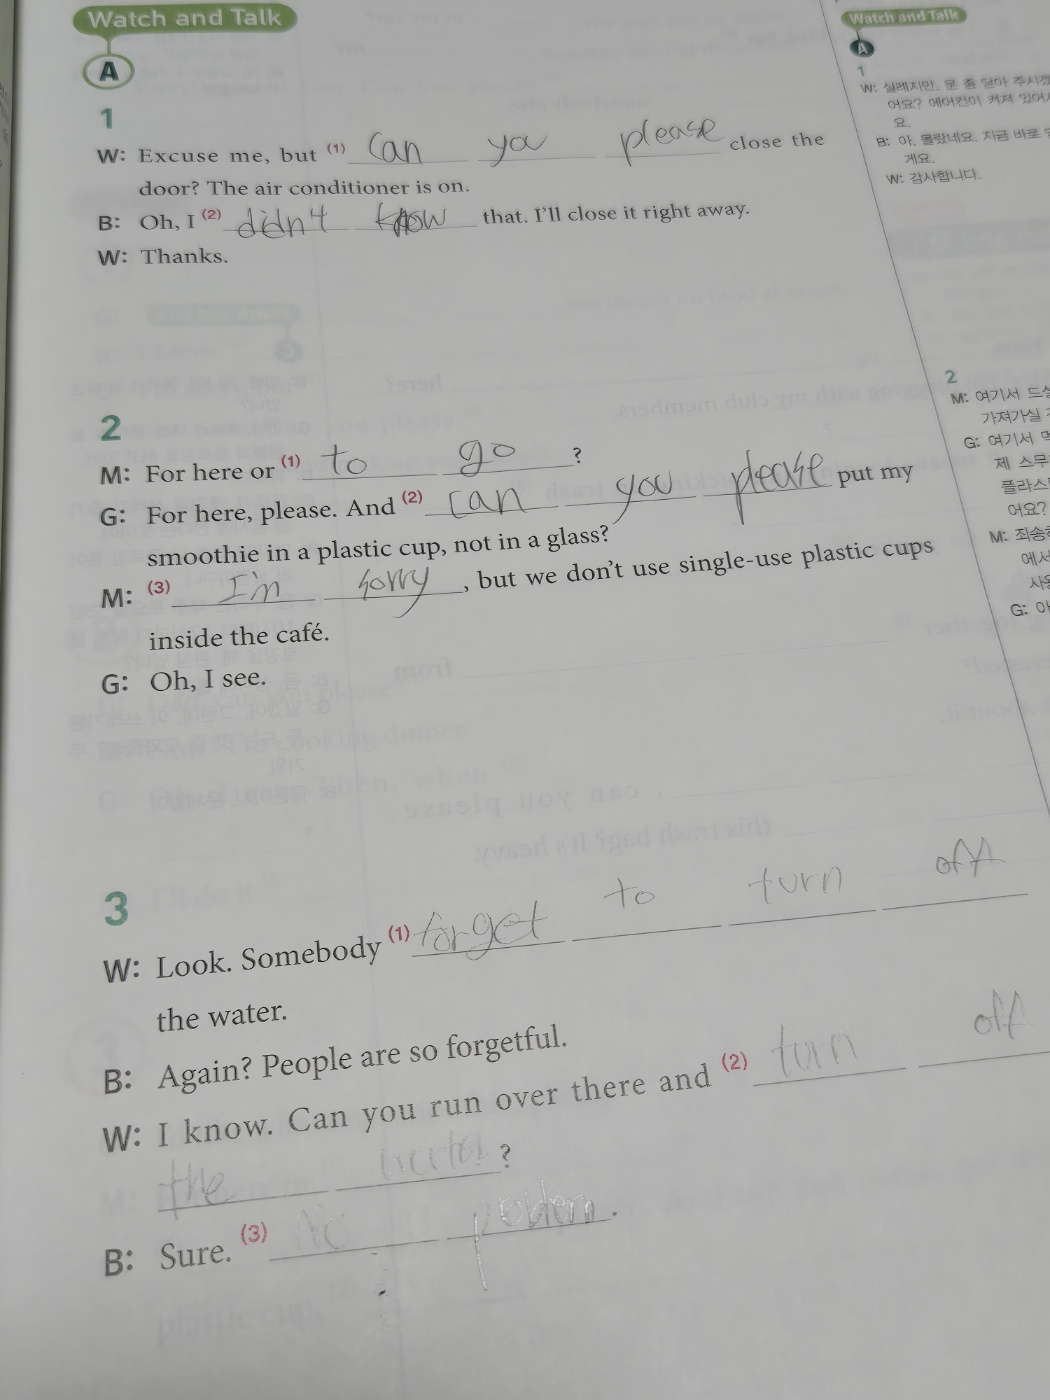 Watch and Talk
A
1
W: Excuse me, but (1) can you please close the
door? The air conditioner is on.
B: Oh, I (2) didn't know that. I'll close it right away.
W: Thanks.
2
M: For here or (1) to go ?
G: For here, please. And (2) can you please put my
smoothie in a plastic cup, not in a glass?
M: (3) I'm sorry, but we don't use single-use plastic cups
inside the café.
G: Oh, I see.
3
W: Look. Somebody (1) forget to turn off
the water.
B: Again? People are so forgetful.
W: I know. Can you run over there and (2) turn off
the ?
B: Sure. (3) No .
Watch and Talk
A
1
W: 실례지만, 문 좀 닫아 주시겠
어요? 에어컨이 켜져 있어서
요.
B: 아, 몰랐네요. 지금 바로
게요.
W: 감사합니다.
2
M: 여기서 드실
가져가실
G: 여기서
제 스무
플라스
어요?
M: 죄송
에서
사용
G: 아